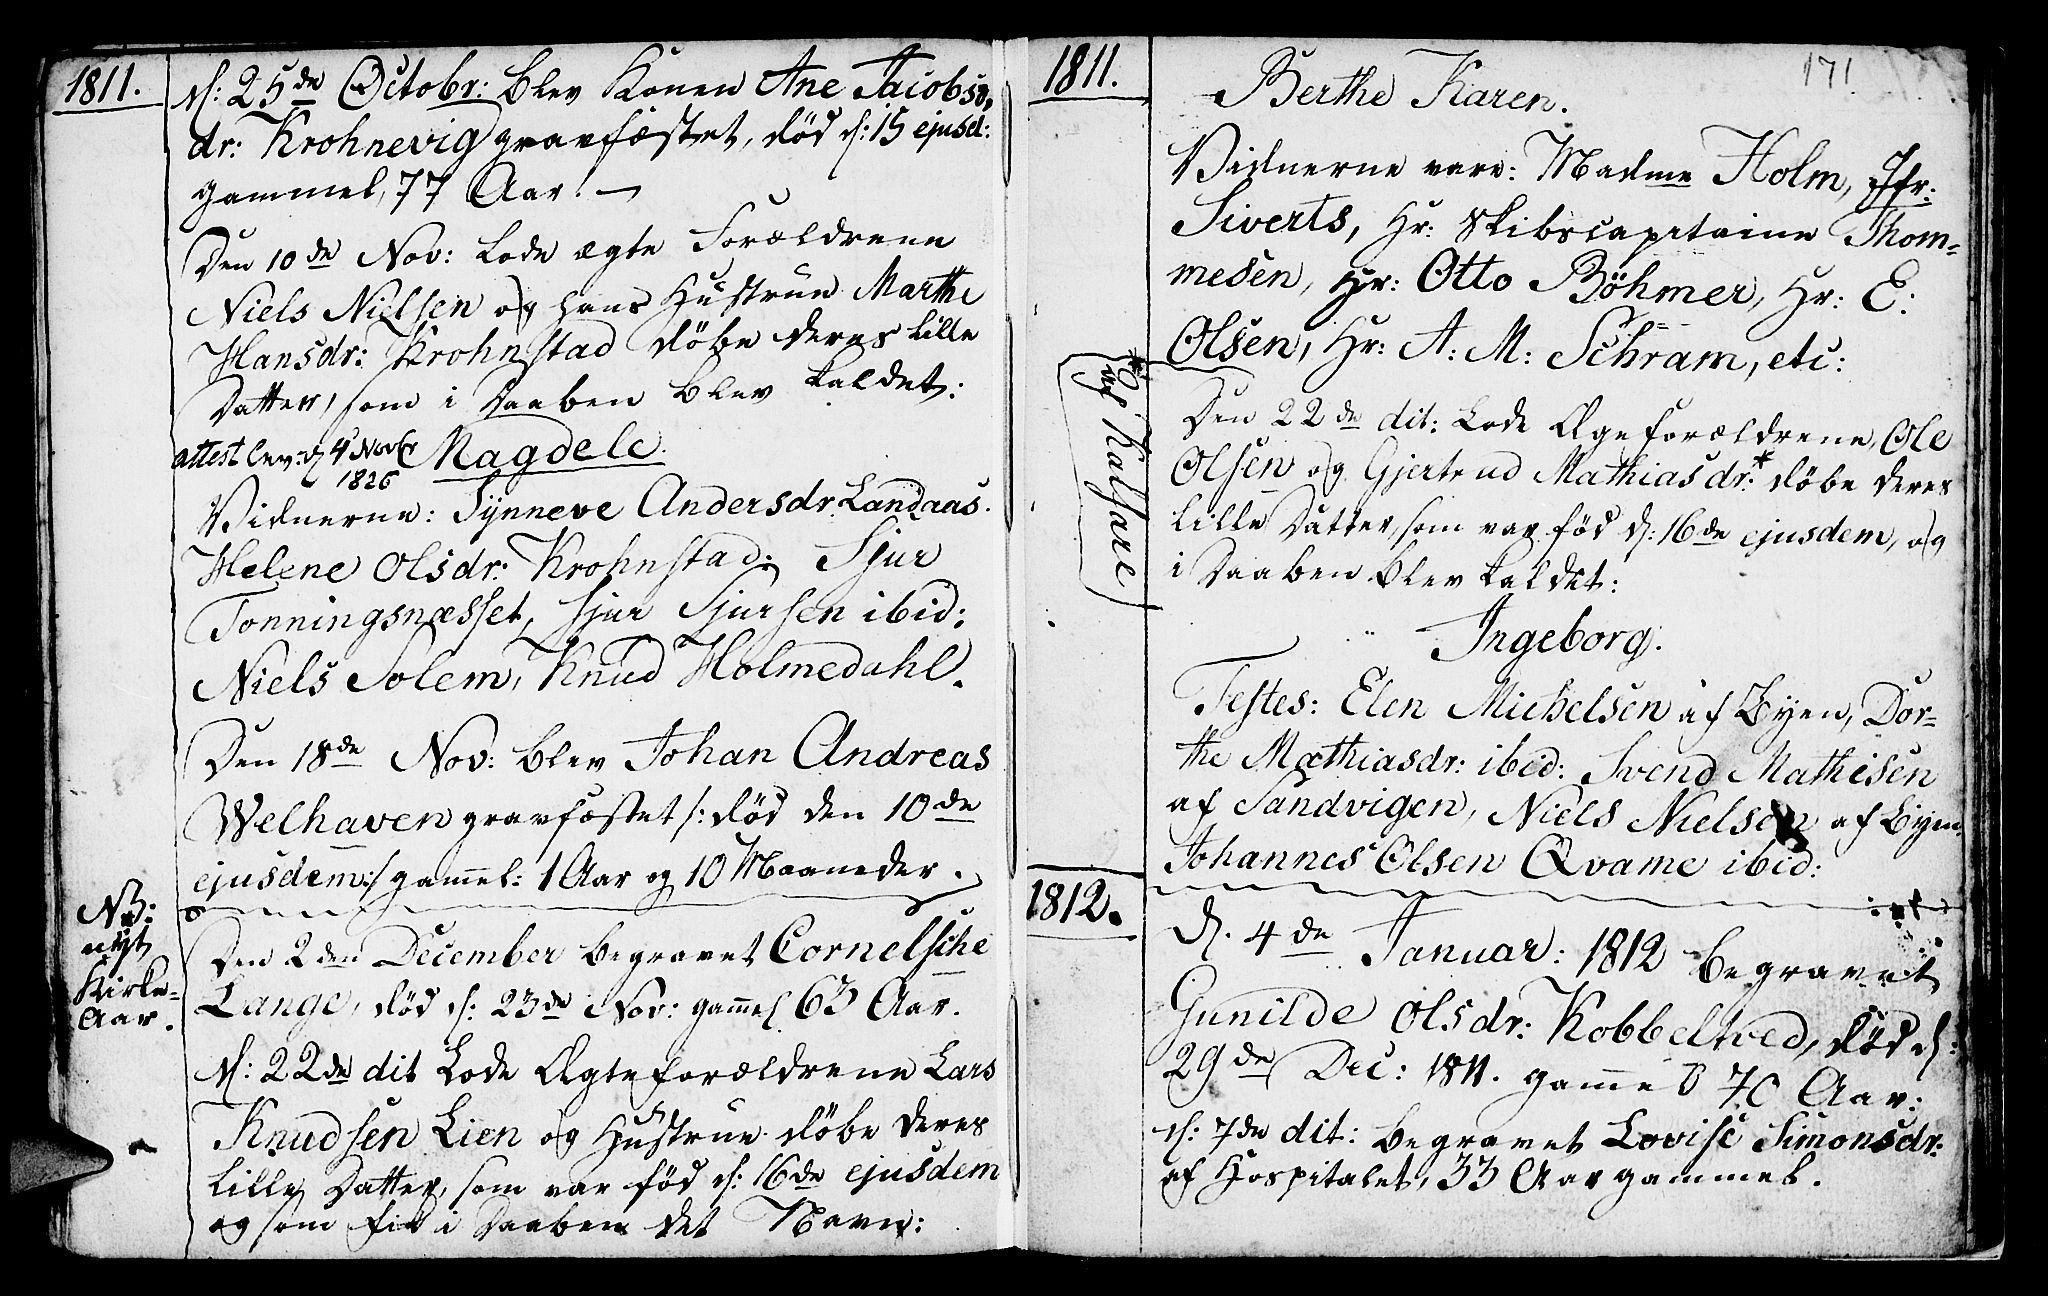 1811.
d: 25de Octobr: blev Konen Ane Jacobs-
dr: Krohnevig gravfæstet, död d: 15 ejusd:
gammel, 77 Aar. —
Den 10de Nov: lode ægte Forældrene
Niels Nielsen og hans Hustrue Marthe
Hansdr: Krohnstad döbe deres lille
Datter, som i Daaben blev kaldet:
attest lev: d 4 Novbr
1826
Magdele.
Vidnerne: Synneve Andersdr. Landaas.
Helene Olsdr: Krohnstad; Sjur
Tonningsnæsset, Sjur Sjursen ibid:
Niels Solem, Knud Holmedahl.
Den 18de Nov: blev Johan Andreas
Welhaven gravfæstet /: död den 10de
ejusdem :/ gam̄el: 1 Aar og 10 Maaneder.
NB:
nyt
Kirke-
Aar.
Den 2den December begravet Cornelsche
Lange, död d: 23de Nov: gam̄el 63 Aar.
d: 22de dit lode Ægteforældrene Lars
Knudsen Lien og Hustrue döbe deres
lille Datter, som var föd d: 16de ejusdem
og som fik i Daaben det Navn:
1811.
171
Berthe Karen.
Vidnerne vare: Madme Holm, Jfr:
Siverts, Hr: Skibscapitaine Thom-
mesen, Hr: Otto Böhmer, Hr: E:
Olsen, Hr: A: M: Schram, etc:
* af Kalfare
Den 22de dit: lode Ægeforældrene, Ole
Olsen og Gjertrud Mathiasdr:* döbe deres
lille Datter, som var föd d: 16de ejusdem, og
i Daaben blev kaldet:
Ingeborg.
Testes: Elen Michelsen af Byen, Dor-
the Mathiasdr: ibid: Svend Mathisen
af Sandvigen, Niels Nielsen af Byen
Johannes Olsen Qvame ibid:
1812.
d. 4de Januar: 1812 begravet
Gunilde Olsdr: Kobbeltved, död d:
29de Dec: 1811. gam̄el 70 Aar:
d: 7de dit: begravet Lovise Simonsdr:
af Hospitalet, 33 Aar gammel.